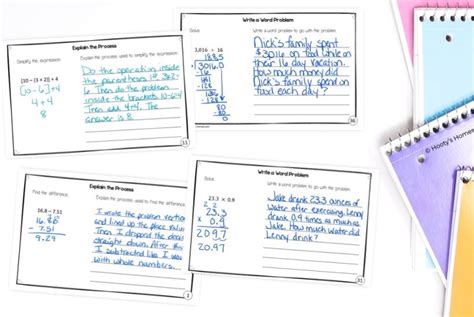 Explain the Process
Simplify the expression.
Explain the process used to simplify the expression.
[10 - (3 × 2)] + 4
[10 - 6] + 4
4 + 4
8
Do the operation inside
the parentheses 1st 3x2=
6. Then do the problem
inside the brackets 10-6=4
Then add 4+4. The
answer is 8.
33
Write a Word Problem
Solve
Write a word problem to go with the problem.
3,016 ÷ 16
188.5
16 3016.0
-16
141
-128
136
-128
80
-80
0
Nick's family spent
$3016 on food while on
their 16 day vacation.
How much money did
Nick's family spend on
food each day?
36
Explain the Process
Find the difference.
Explain the process used to find the difference.
16.8 - 7.51
16.80
- 7.51
9.29
I wrote the problem vertical
and lined up the place value
Then I dropped the decimal
straight down. After this
I subtracted like I would
with whole numbers.
2
Write a Word Problem
Solve
Write a word problem to go with the problem.
23.3 × 0.9
2 2
23.3
x 0.9
2097
20.97
Jake drank 23.3 ounces of
water after exercising. Lenny
drank 0.9 times as much as
Jake. How much water did
Lenny drink?
31
© Hooty's Homeroom